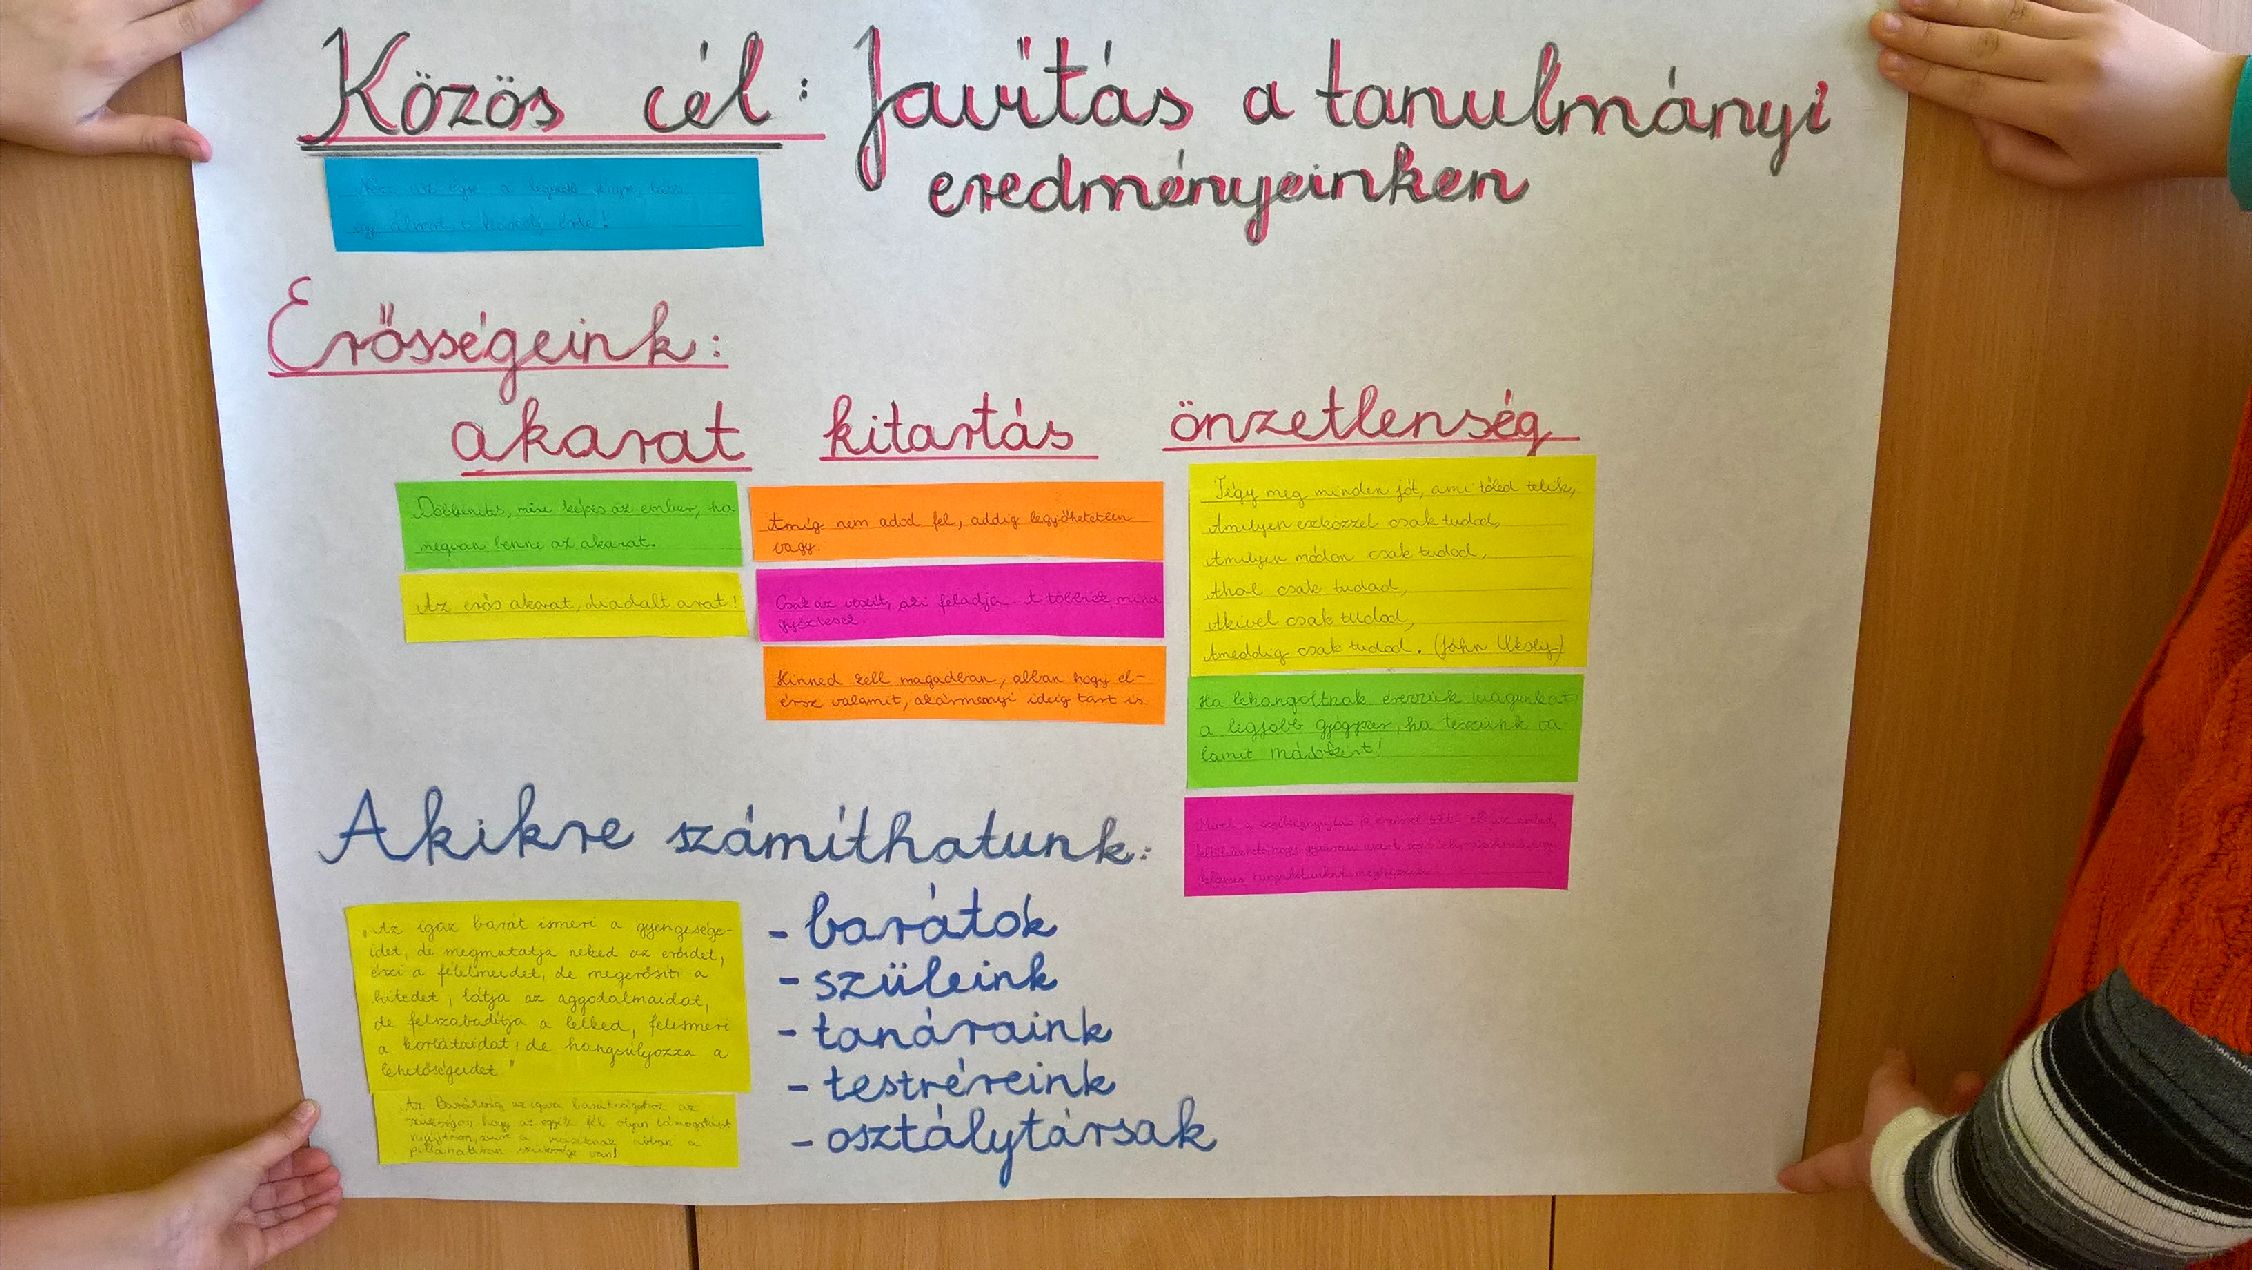 Közös cél: Javítás a tanulmányi
eredményeinken
egy álmot, s küzdj érte!
Erősségeink:
akarat kitartás önzetlenség
Döbbenetes, mire képes az ember, ha
megvan benne az akarat.
Az erős akarat, diadalt arat!
Amíg nem adod fel, addig legyőzhetetlen
vagy.
Csak az veszít, aki feladja. A többiek mind
győztesek.
Hinned kell magadban, abban hogy el-
érsz valamit, akármennyi ideig tart is.
Tégy meg minden jót, ami tőled telik,
Amilyen eszközzel csak tudod,
Amilyen módon csak tudod,
Ahol csak tudod,
Akivel csak tudod,
Ameddig csak tudod. (John Wesley)
Ha lehangoltnak érezzük magunkat
a legjobb gyógyszer, ha teszünk va-
lamit másokért!
Akikre számíthatunk:
- barátok
- szüleink
- tanáraink
- testvéreink
- osztálytársak
„Az igaz barát ismeri a gyengesége-
idet, de megmutatja neked az erőidet,
érzi a félelmeidet, de megerősíti a
hitedet, látja az aggodalmaidat,
de felszabadítja a lelked, felismeri
a korlátaidat, de hangsúlyozza a
lehetőségeidet"
szükséges, hogy az egyik fél olyan támogatást
nyújtson, amire a másiknak abban a
pillanatban szüksége van!